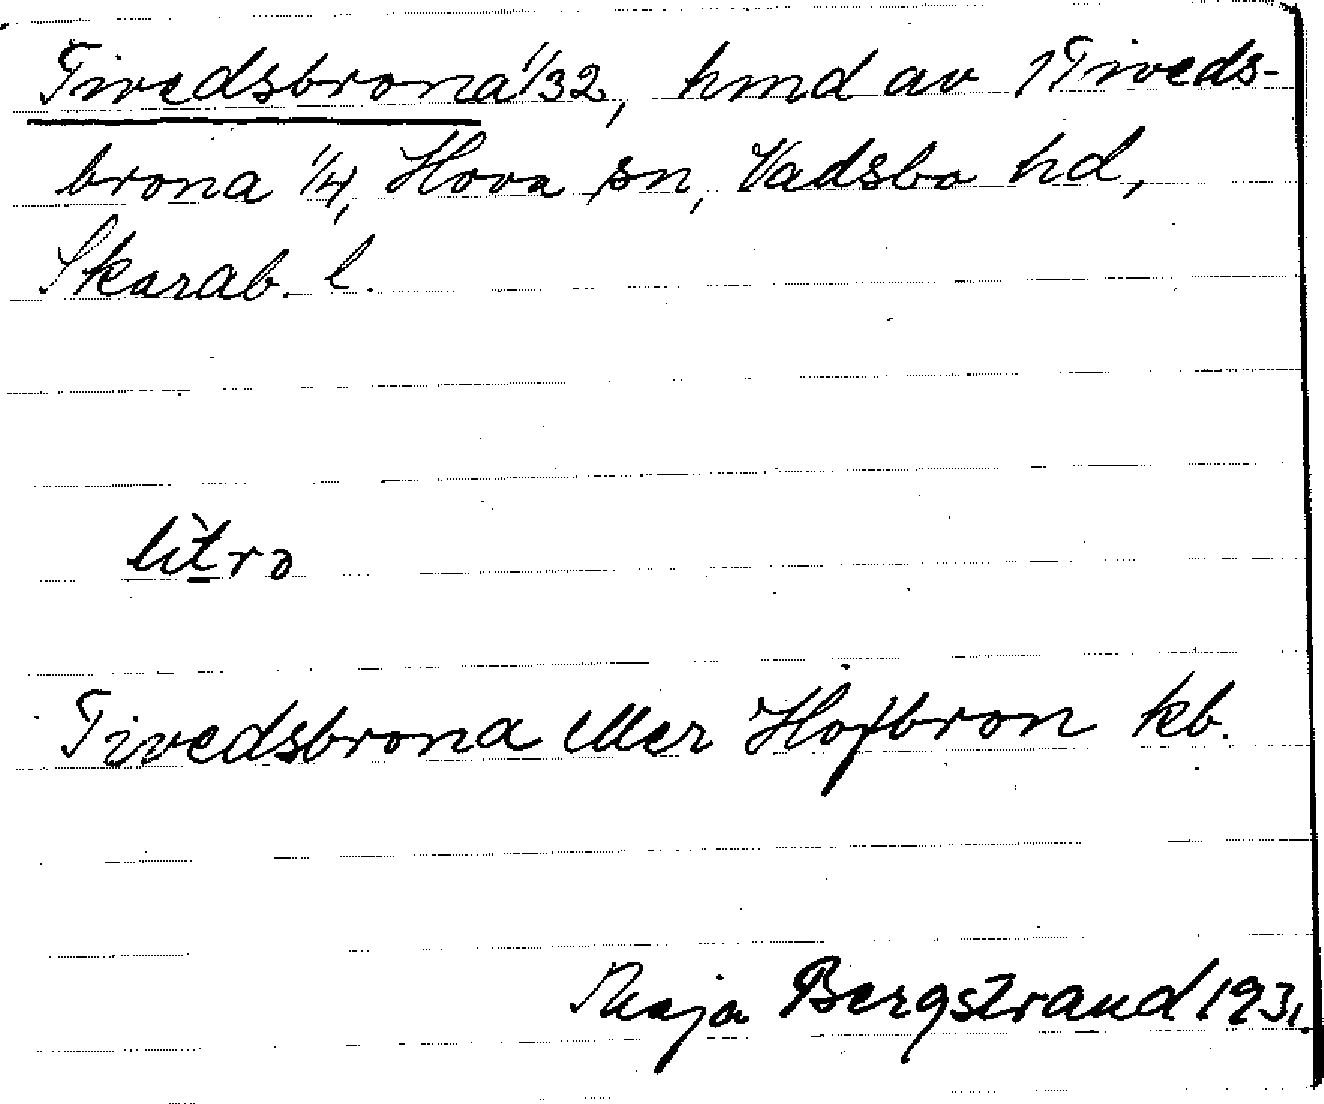 Tivedsbrona 1/32, hmd av 1 Tiveds-
brona 1/4, Hova sn, Vadsbo hd,
Skarab. l.
Tivedsbrona eller Hofbron kb.
Maja Bergstrand 1931.